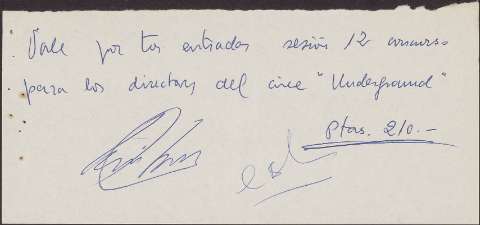 Vale por tres entradas sesión 12 concurso
para los directores del cine "Underground"
Ptas. 210.-